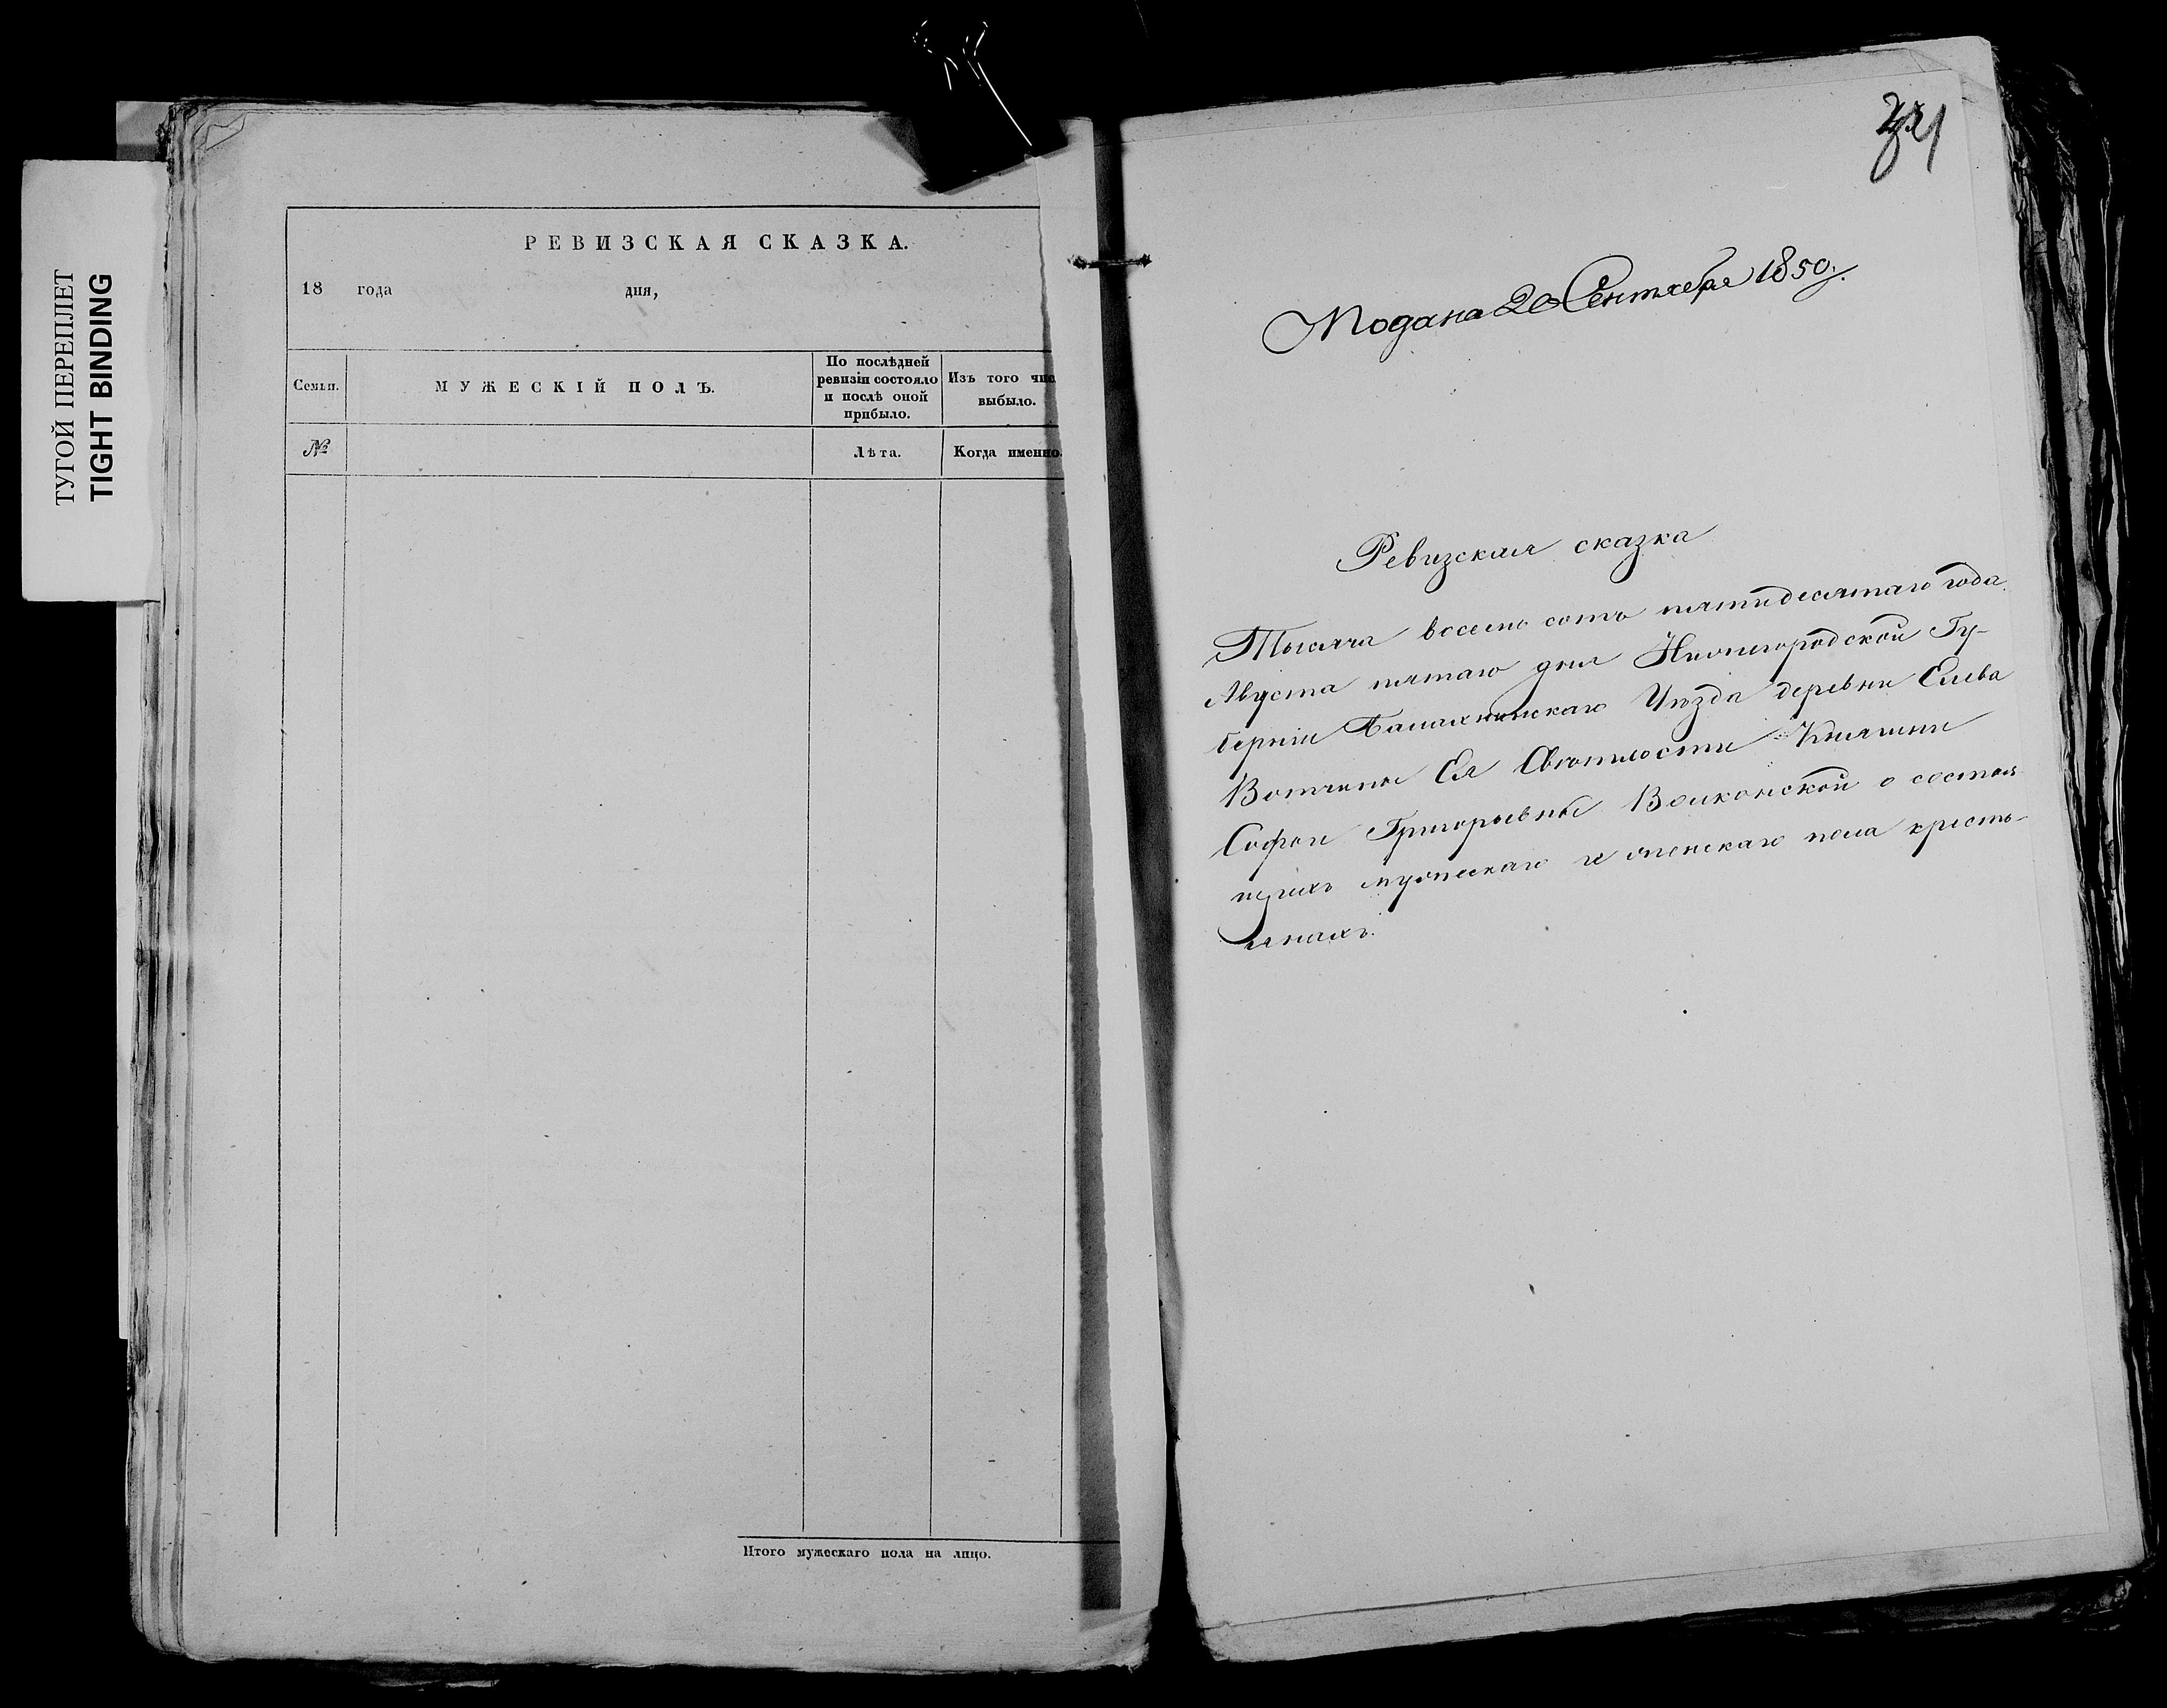 ТУГОЙ ПЕРЕПЛЕТ
TIGHT BINDING
РЕВИЗСКАЯ СКАЗКА.
18 года дня,
Семьи.
МУЖЕСКІЙ ПОЛЪ.
По послѣдней
ревизіи состояло
и послѣ оной
прибыло.
Изъ того
выбыло.
№
Лѣта.
Когда именно.
Итого мужескаго пола на лицо.
Подана 20 Сентября 1850 г.
Ревизская сказка
Тысяча восемь сотъ пятидесятаго года
Августа пятаго дня Нижегородской Гу-
берніи Балахнинскаго Уѣзда деревни
Вотчины Ея Свѣтлости Княгини
Софьи Григорьевны Волконской о состоя
щихъ мужескаго и женскаго пола кресть-
янахъ.